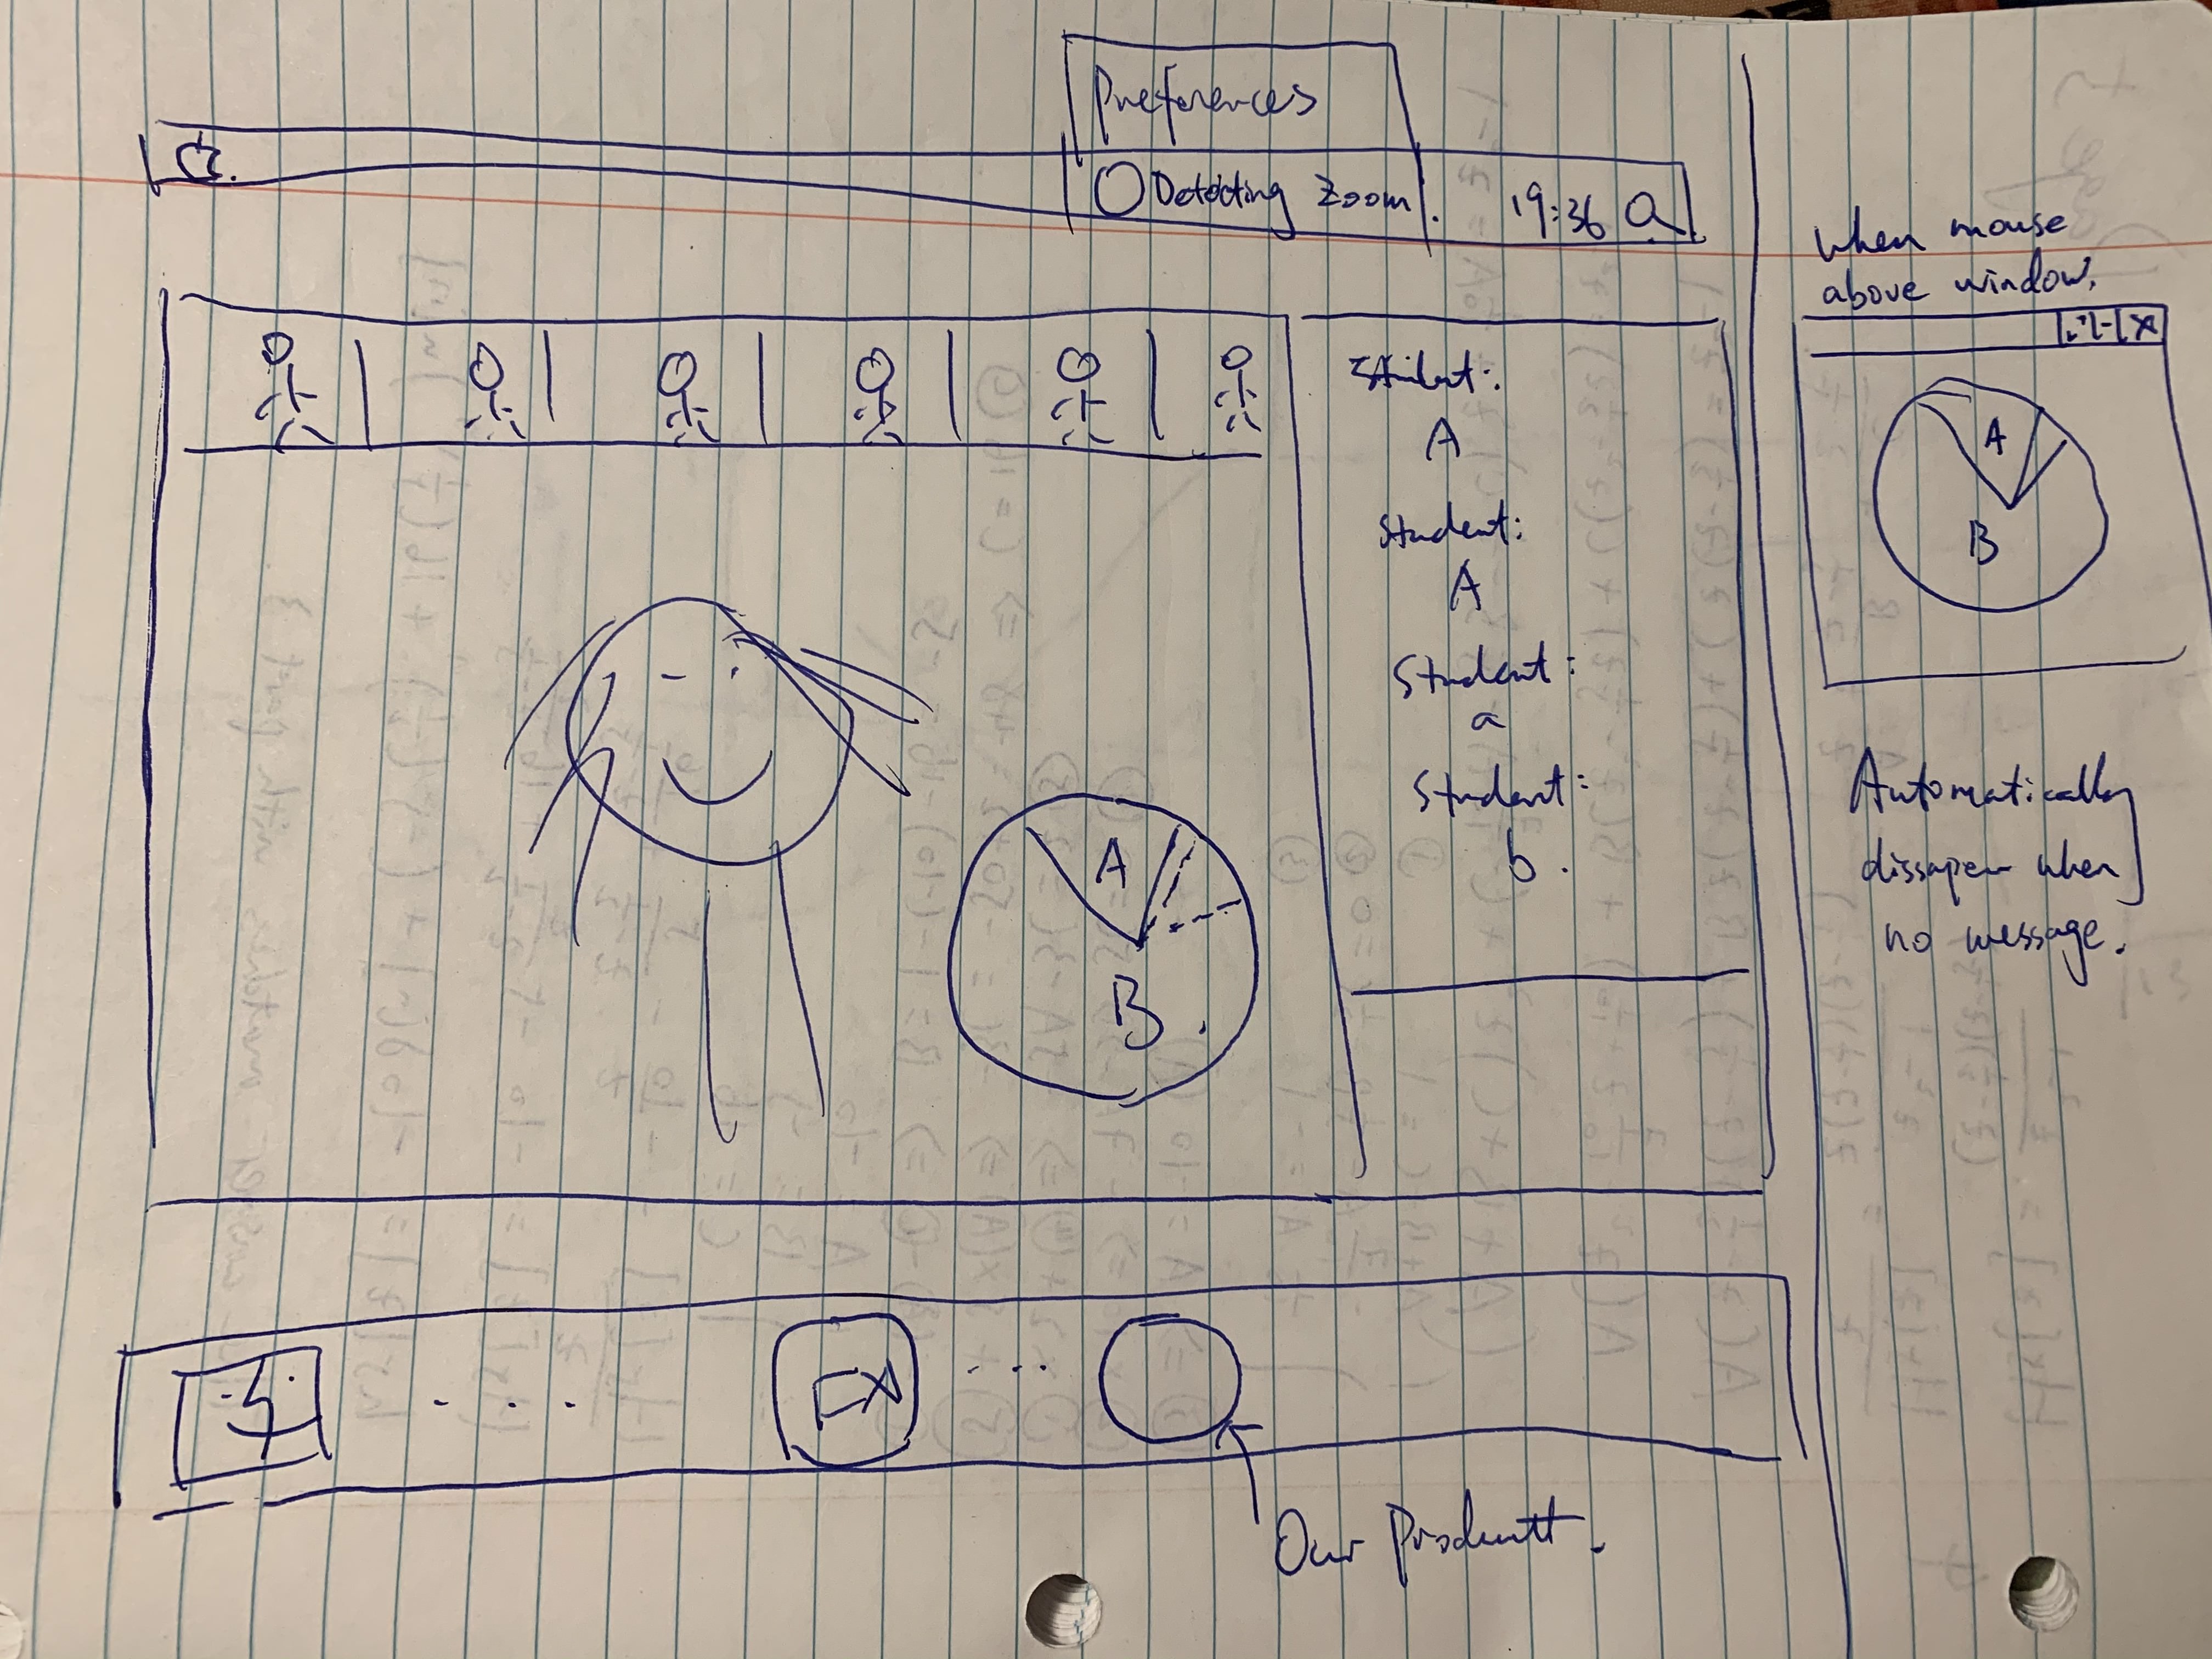 Preferences
Detecting Zoom.
19:36
Student:
A
Student:
A
Student:
a
Student:
b.
A
B
Our Productt.
when mouse
above window.
A
B
Automatically
dissaper when
no message.